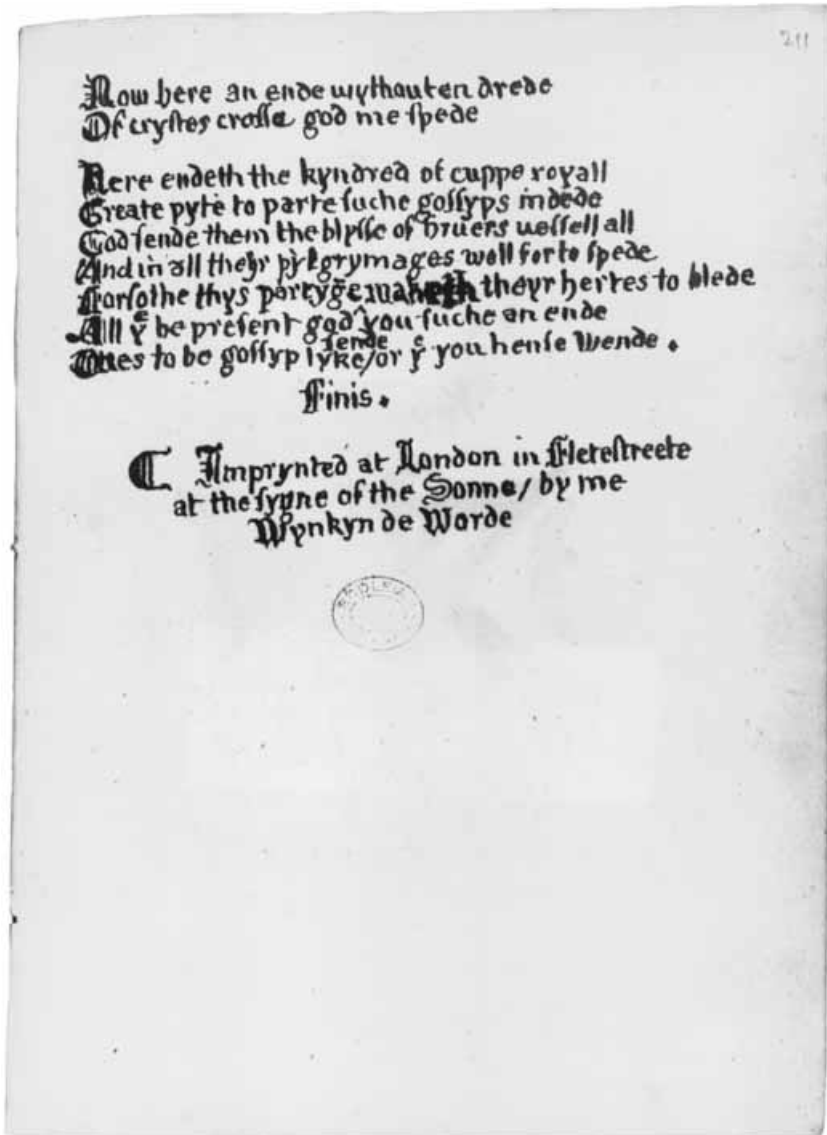 211
Now here an ende wythouten drede
Of crystes crosse god me spede
Here endeth the kyndred of cuppe royall
Greate pyte to parte suche gossyps indede
God sende them the blysse of bruers vessell all
And in all theyr pylgrymages well for to spede
Forsothe thys partyge maketh theyr hertes to blede
All yͤ be present god ^ you suche an ende
sende
Ones to be gossyp lyke/or yͤ you hense wende .
Finis .
C Imprynted at London in Fletestreete
at the sygne of the Sonne/ by me
Wynkyn de Worde